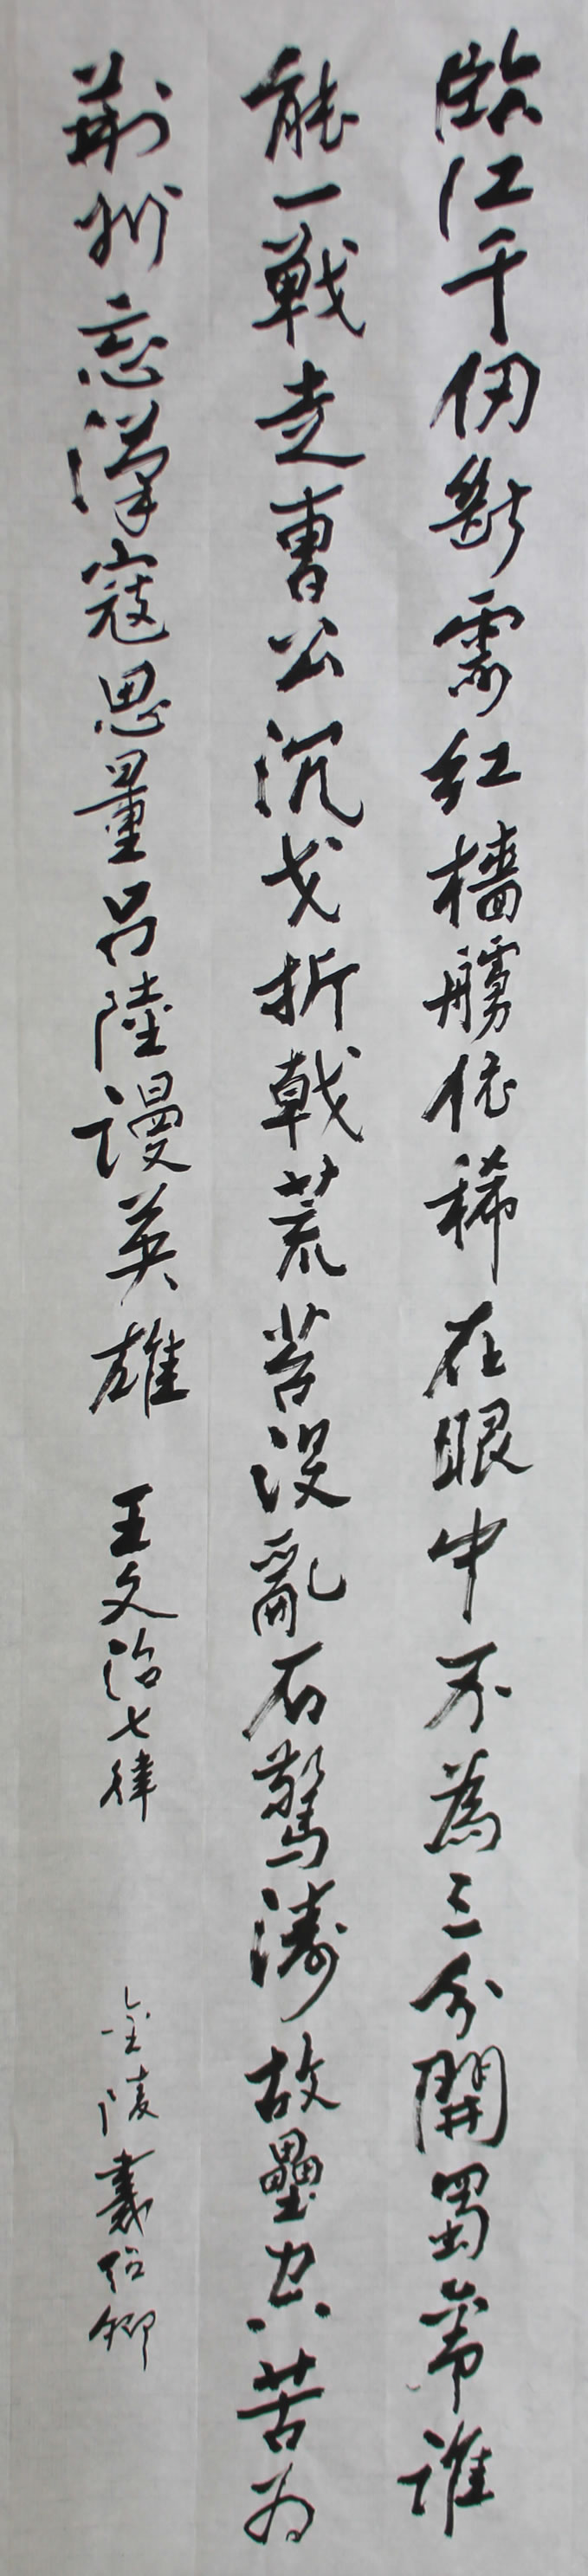 臨江千仞斷霞紅檣艣依稀在眼中不為三分開蜀帝誰
能一戰走曹公沉戈折戟荒苔沒亂石驚濤故壘空苦為
荊州忘漢寇思量呂陸謾英雄 王文治七律
金陵 紹卿